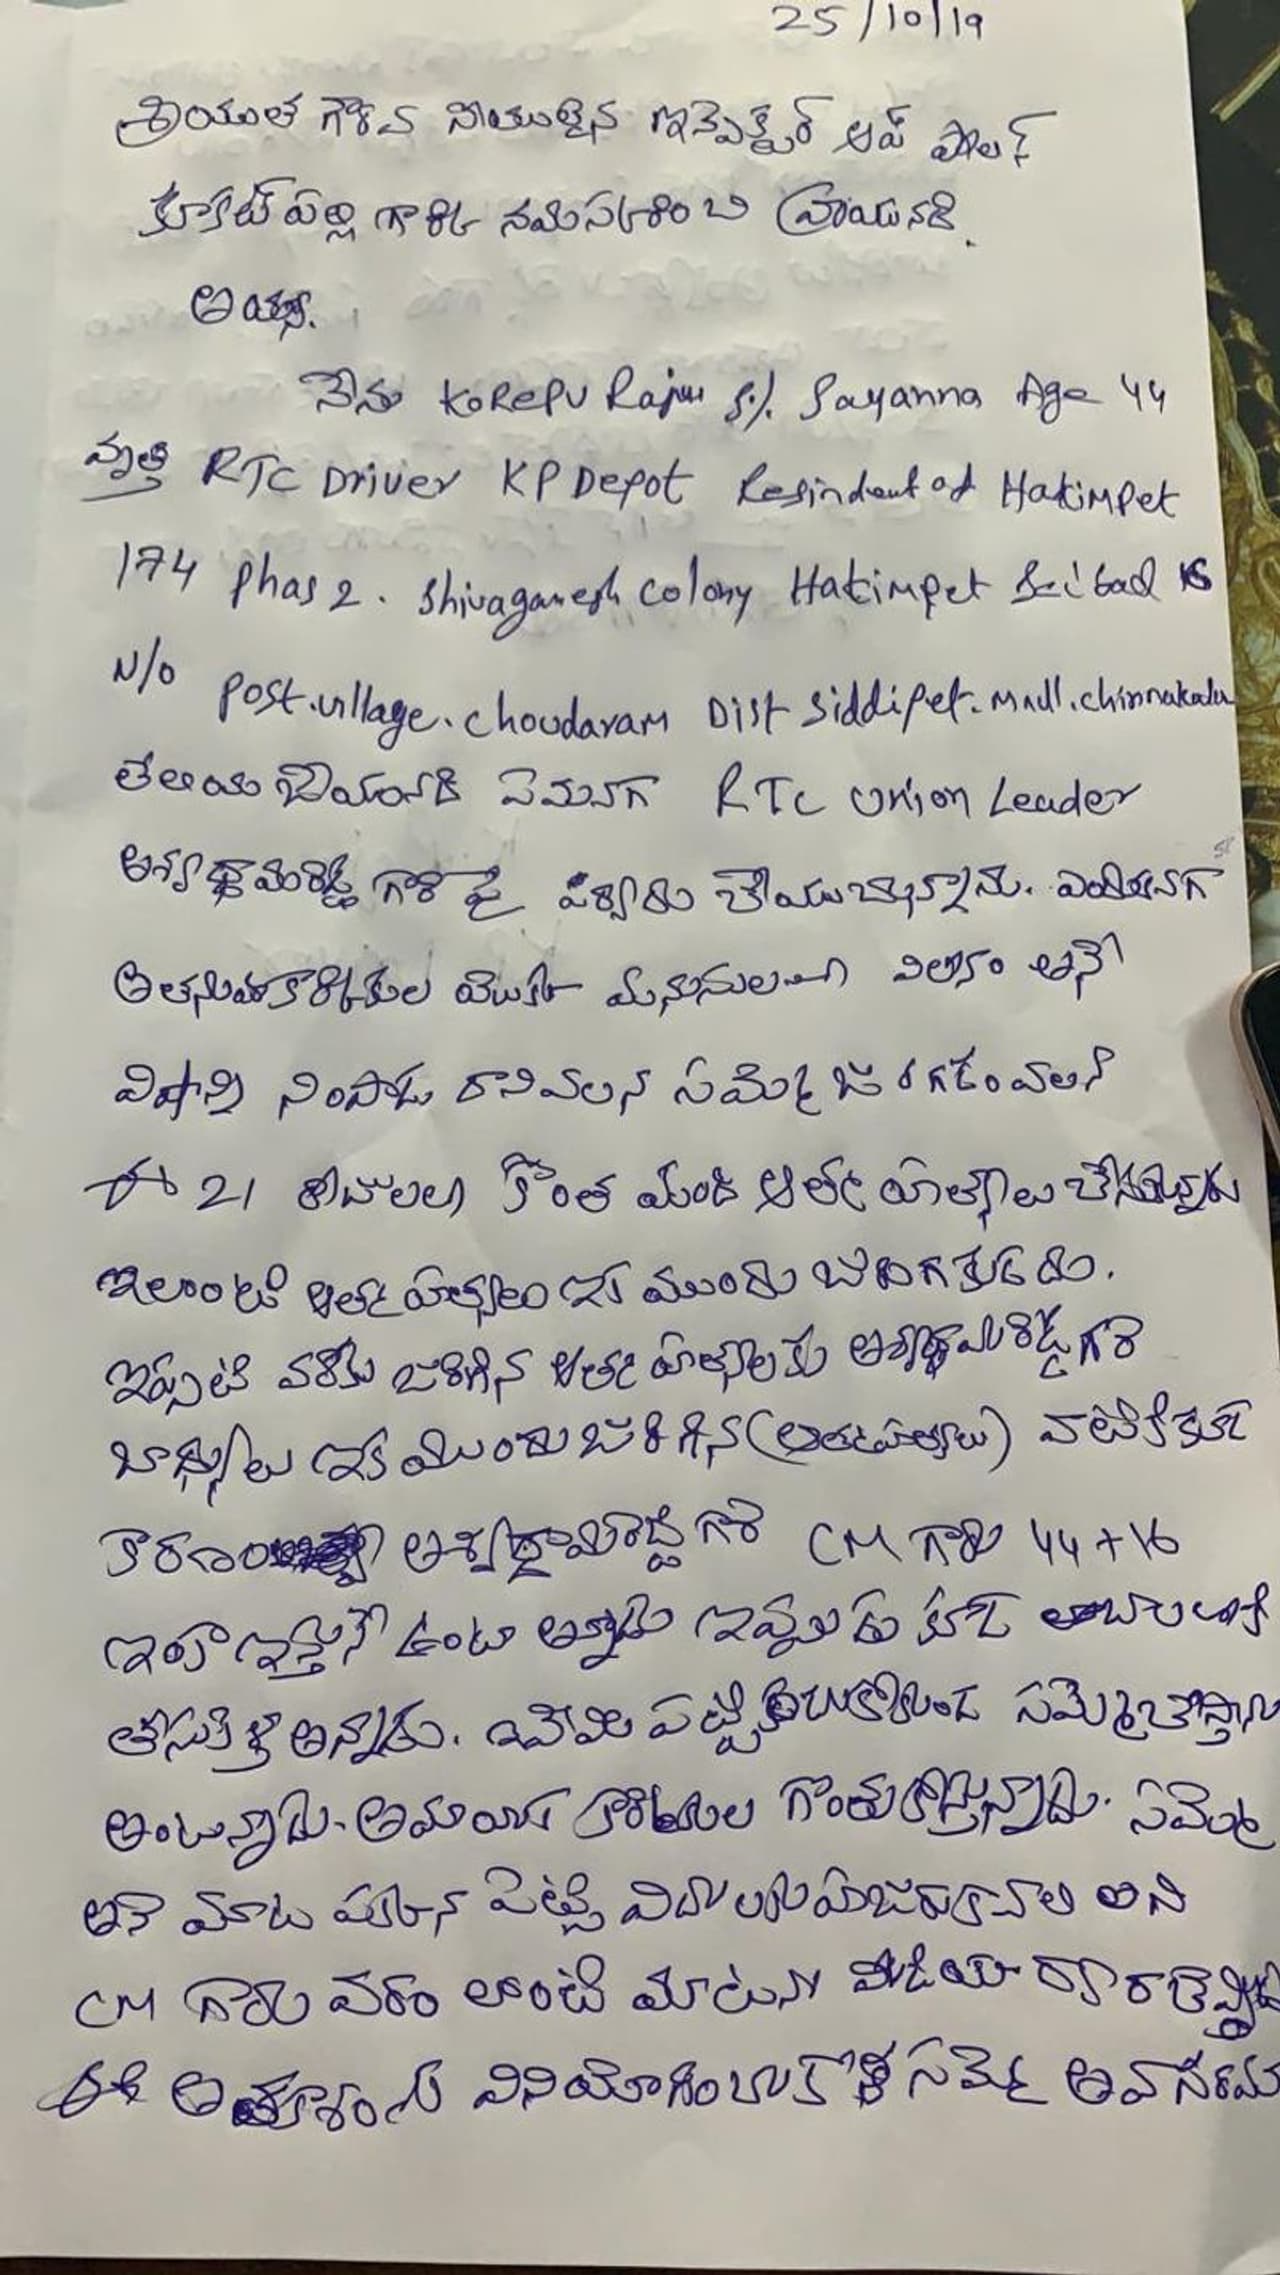 25/10/19
శ్రీయుత గౌరవ నీయులైన ఇన్స్పెక్టర్ ఆఫ్ పోలీస్
కూకట్ పల్లి గారికి నమస్కరించి వ్రాయునది.
అయ్యా.
నేను KOREPU Raju S/. Sayanna Age 44
వృత్తి RTC Driver KP Depot Resindent of Hakimpet
174 phas 2. Shivaganesh colony Hakimpet Sec'bad
N/o post.village.choudaram Dist Siddipet. Mndl.chinnakodu
తేలియ చేయునది ఏమనగా RTC union Leader
అశ్వథ్థామరెడ్డి గారి పై పిర్యాదు చేయుచున్నాను. ఎందుకనగా
కార్మికుల యొక్క మనుసులలో విలీనం అనే
విషాన్ని నింపాడు దానివలన సమ్మె జరగడంవలన
ఈ 21 రోజులలో కొంత మంది ఆత్మ హత్యలు చేసుకున్నారు
ఇలాంటి ఆత్మహత్యలు ఇక ముందు జరుగకూడదు.
ఇప్పటి వరకు జరిగిన ఆత్మ హత్యలకు అశ్వథ్థామరెడ్డి గారి
బాధ్యులు ఇక ముందు జరిగిన (ఆత్మహత్యలు) వాటికి కూడ
కారణం అశ్వథ్థామరెడ్డి గారి CM గారు 44 + 16
ఇంకా ఇస్తునే ఉంటా అన్నాడు ఇప్పుడు కూడ లాబాలలోకి
తీసుకెళ్తా అన్నాడు. ఇవేమి పట్టించుకోకుండ సమ్మెచేస్తాను
అంటున్నాడు. అమాయక కార్మికుల గొంతుకోస్తున్నాడు. సమ్మె
అనే మాట పక్కన పెట్టి విదులకు హజరుకావాలి అని
CM గారు వరం లాంటి మాటను మీడియా ద్వార
ఈ అవకాశంని వినియోగించుకొని సమ్మె